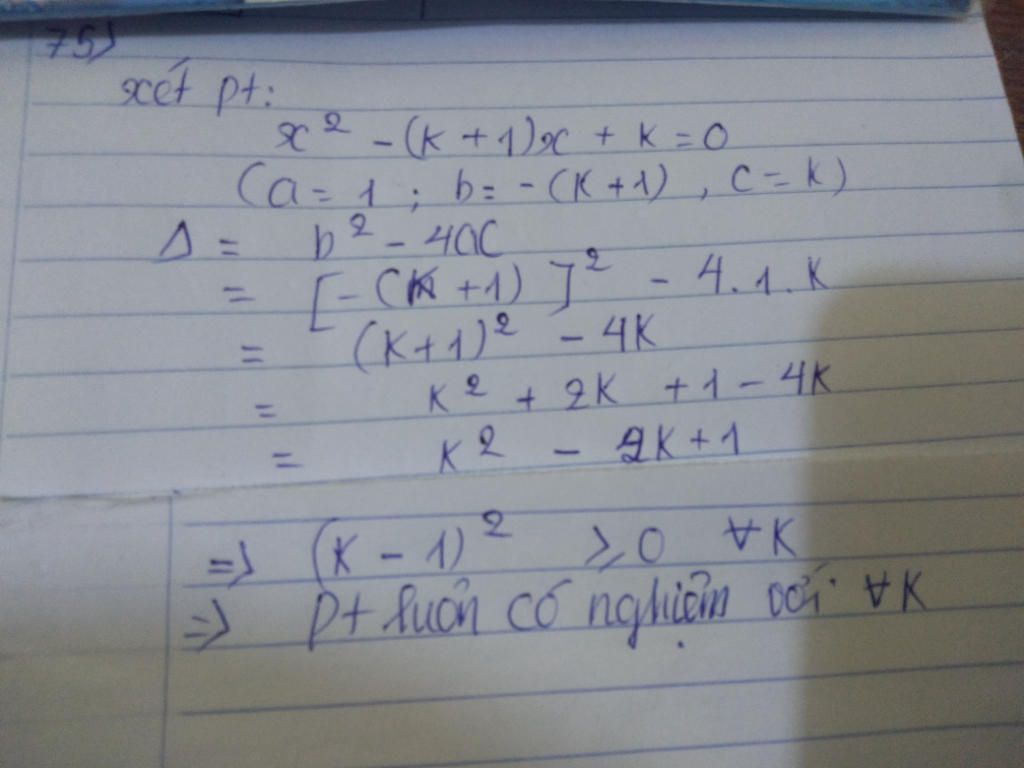 75)
xét pt:
x² - (K + 1)x + K = 0
(a = 1 ; b = - (K + 1) , c = K)
Δ = b² - 4ac
= [- (K + 1) ]² - 4. 1. K
= (K + 1)² - 4K
= K² + 2K + 1 - 4K
= K² - 2K + 1
=> (K - 1)² ≥ 0 ∀K
=> Pt luôn có nghiệm với ∀K